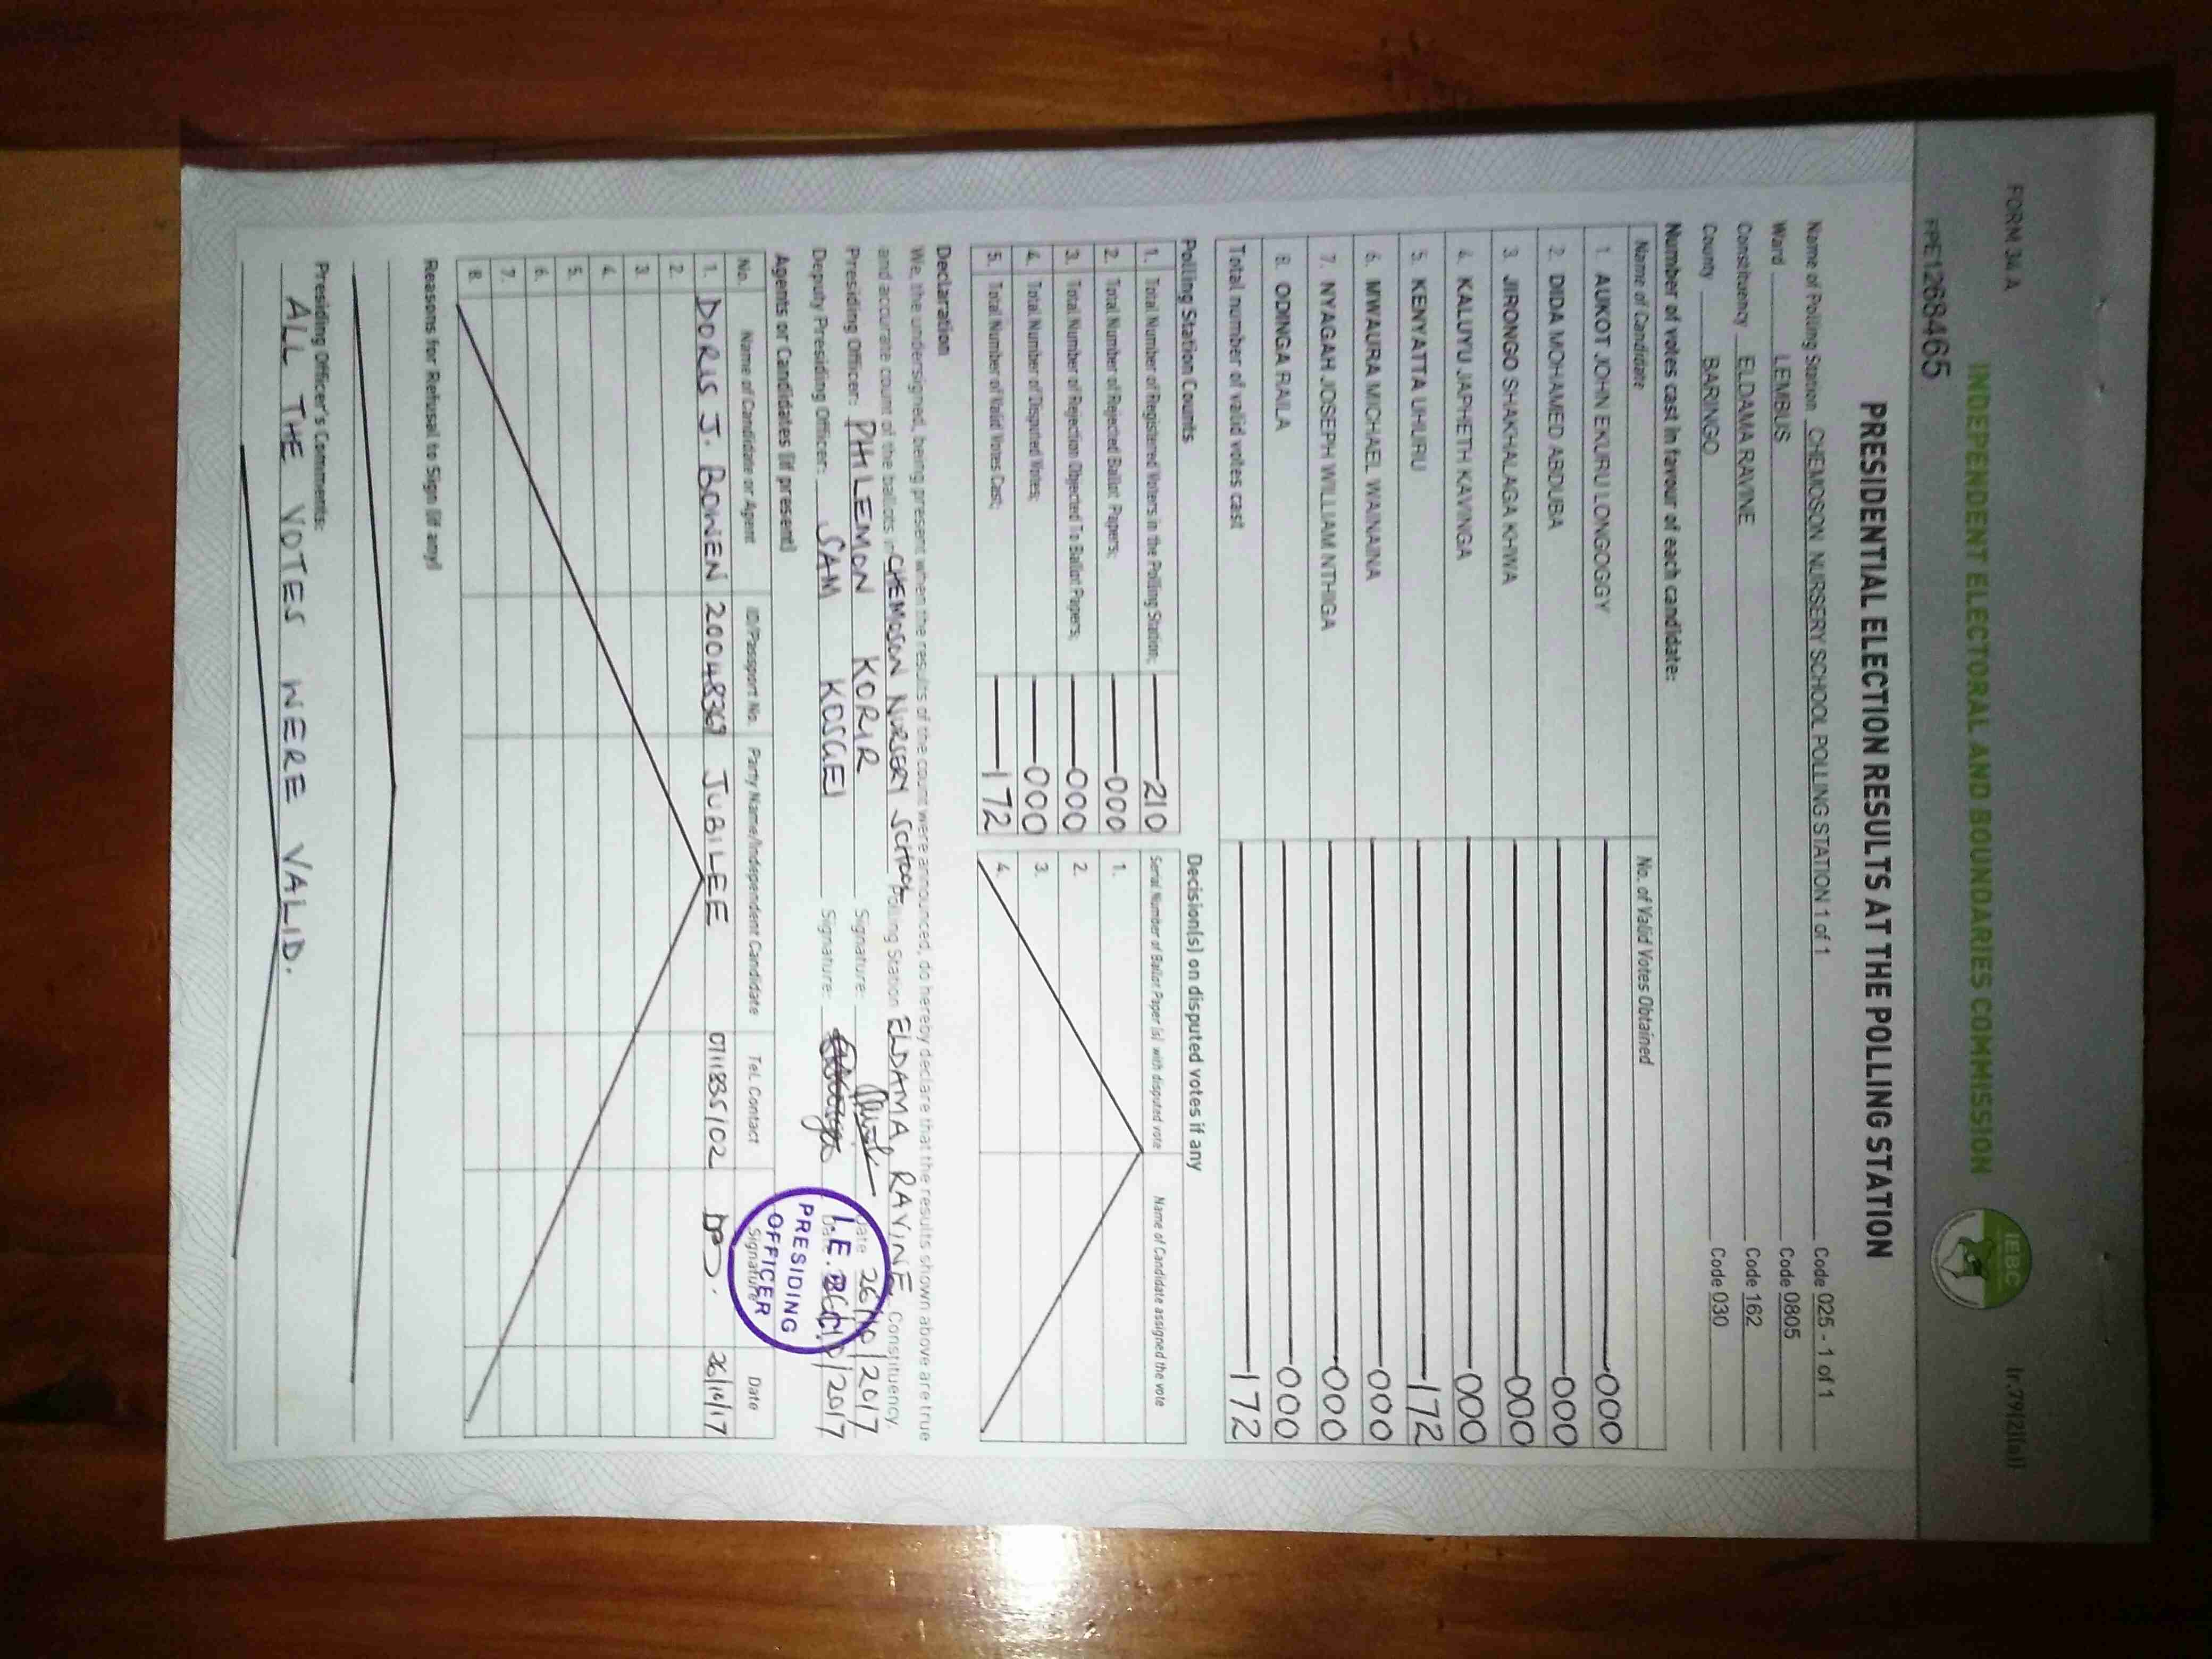 FORM 34 A
INDEPENDENT ELECTORAL AND BOUNDARIES COMMISSION
IEBC
(r.79(2)(a))
FPE1268465
PRESIDENTIAL ELECTION RESULTS AT THE POLLING STATION
Name of Polling Station CHEMOSON NURSERY SCHOOL POLLING STATION 1 of 1 Code 025 - 1 of 1
Ward LEMBUS Code 0805
Constituency ELDAMA RAVINE Code 162
County BARINGO Code 030
Number of votes cast in favour of each candidate:
Name of Candidate No. of Valid Votes Obtained
1. AUKOT JOHN EKURU LONGOGGY 000
2. DIDA MOHAMED ABDUBA 000
3. JIRONGO SHAKHALAGA KHWA 000
4. KALUYU JAPHETH KAVINGA 000
5. KENYATTA UHURU 172
6. MWAURA MICHAEL WAINAINA 000
7. NYAGAH JOSEPH WILLIAM NTHIGA 000
8. ODINGA RAILA 000
Total number of valid votes cast 172
Polling Station Counts Decision(s) on disputed votes if any
1. Total Number of Registered Voters in the Polling Station; 210 Serial Number of Ballot Paper (s) with disputed vote Name of Candidate assigned the vote
2. Total Number of Rejected Ballot Papers; 000 1.
3. Total Number of Rejection Objected To Ballot Papers; 000 2.
4. Total Number of Disputed Votes; 000 3.
5. Total Number of Valid Votes Cast; 172 4.
Declaration
We, the undersigned, being present when the results of the count were announced, do hereby declare that the results shown above are true
and accurate count of the ballots in CHEMOSON NURSERY SCHOOL Polling Station ELDAMA RAVINE Constituency.
Presiding Officer: PHILEMON KORIR Signature: Date 26/10/2017
Deputy Presiding Officer: SAM KOSGEI Signature: Date /2017
I.E.B.C.
PRESIDING
OFFICER
Agents or Candidates (if present)
No. Name of Candidate or Agent ID/Passport No. Party Name/Independent Candidate Tel. Contact Signature Date
1. DORIS J. BOWEN JUBILEE 0711835102 26/10/17
2.
3.
4.
5.
6.
7.
8.
Reasons for Refusal to Sign (if any)
Presiding Officer's Comments:
ALL THE VOTES WERE VALID.